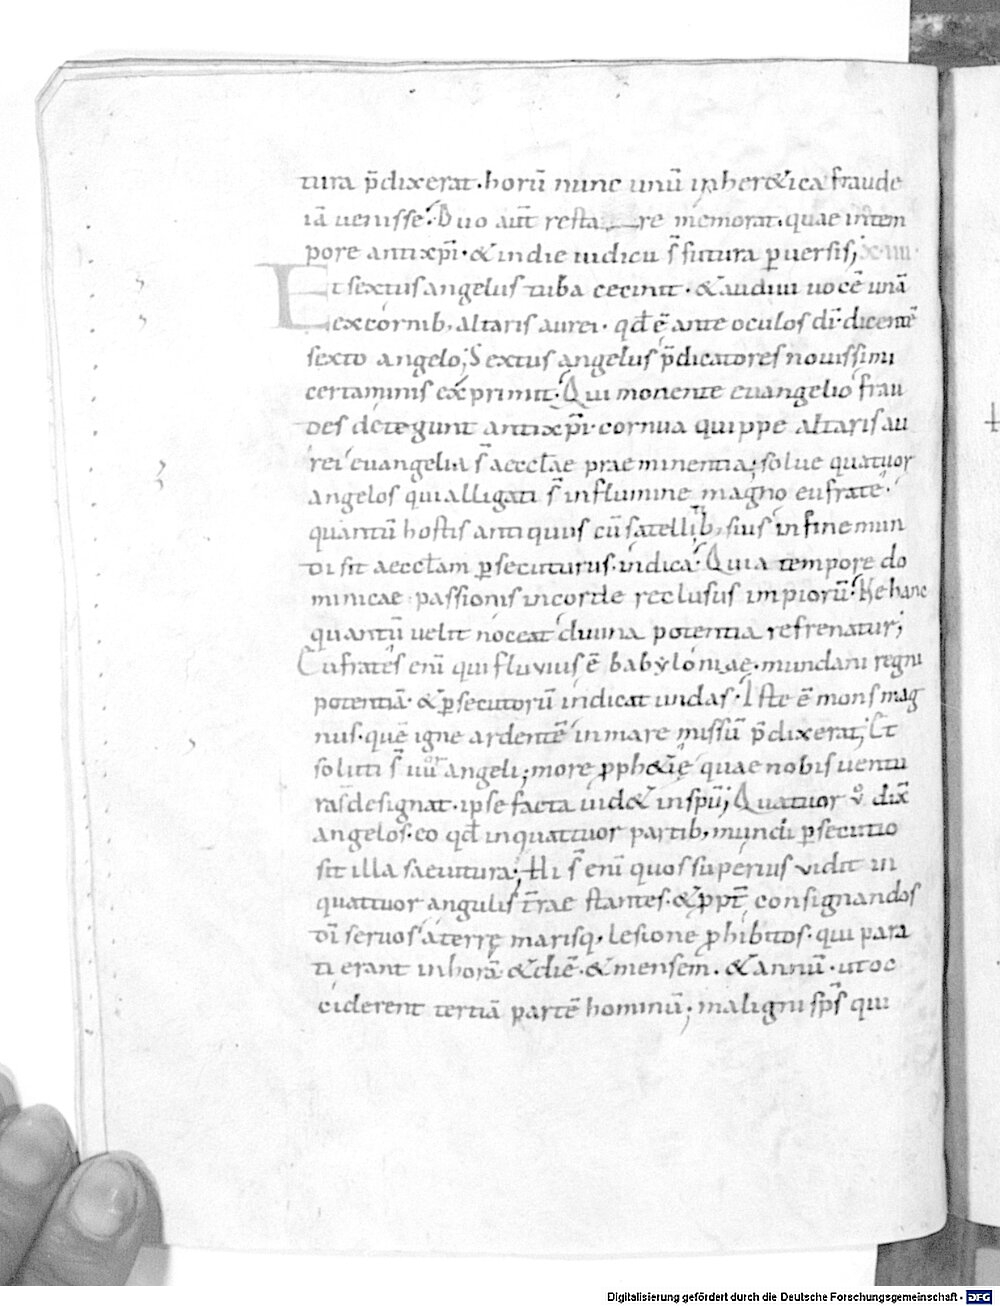 tura p̄dixerat. horū nunc unū inheretica fraude
iā uenisse. Duo aut̄ resta re memorat. quae intem
pore antixp̄i. & indie iudicii s̄ futura puersis;
Et sextus angelus tuba cecinit. & audiui uocē unā
excornib; altaris aurei. qd̄ ē ante oculos dī. dicentē
sexto angelo; Sextus angelus p̄dicatores nouissimi
certaminis exprimit. Qui monente euangelio frau
des detegunt antixp̄i. cornua quippe altaris au
rei euangelia s̄ aeccl̄ae praeminentia; solue quatuor
angelos qui alligati s̄ influmine magno eufrate.
quantū hostis antiquus cū satellib; suis infinemun
di sit aeccl̄am psecuturus. indicat. Quia tempore do
minicae passionis incorde reclusus impiorū. Ne hanc
quantū uelit noceat diuina potentia refrenatur;
Eufrates enī qui fluuius ē babyloniae. mundani regni
potentiā. & psecutorū indicat undas. Iste ē mons mag
nus. quē igne ardentē inmare missū p̄dixerat; Et
soluti s̄ iiiior angeli; more pph&ię quae nobis uentu
ras̄ designat. ipse facta uid& insp̄u; Quatuor v̊ dix̄
angelos. eo qd̄ inquattuor partib; mundi psecutio
sit illa saeuitura; Hi s̄ enī quos superius vidit in
quattuor angulis t̄rae stantes. & ppt̄ consignandos
dī seruos a terrę marisq; lesione phibitos. qui para
ti erant inhorā & diē. & mensem. & annū. utoc
ciderent tertiā partē hominū; maligni sp̄s qui
Digitalisierung gefördert durch die Deutsche Forschungsgemeinschaft - DFG